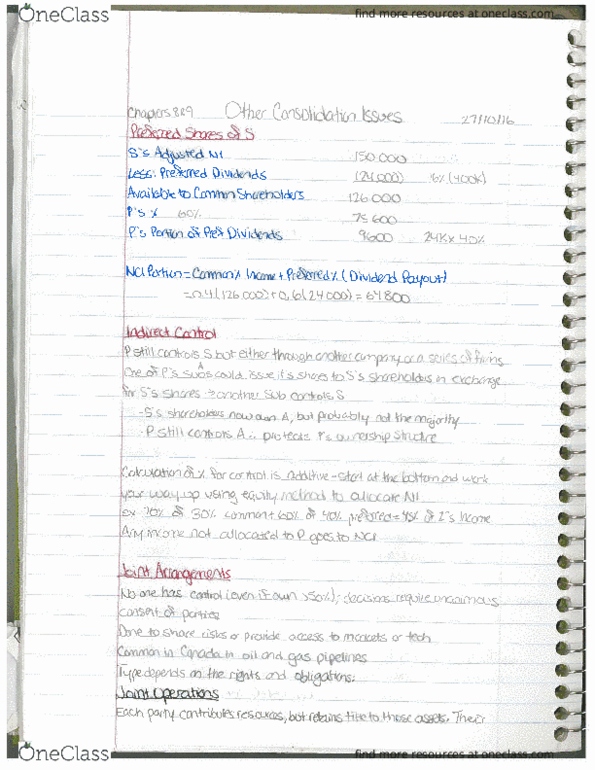 OneClass
find more resources at oneclass.com
Chapters 8&9 Other Consolidation Issues 27/10/16
Preferred Shares of S
S's Adjusted NI 150 000
Less: Preferred Dividends (24 000) 6% (400K)
Available to Common Shareholders 126 000
P's % 60% 75 600
P's Portion of Pref Dividends 9600 24K x 40%
NCI Portion = Common% Income + Preferred% (Dividend Payout)
= 0.4(126 000) + 0.6(24 000) = 64 800
Indirect Control
P still controls S but either through another company or a series of firms
One of P's subs could issue its shares to S's shareholders in exchange
A
for S's shares → another sub controls S
- S's shareholders now own A, but probably not the majority
- P still controls A ∴ protects P's ownership structure
Calculation of % for control is additive - start at the bottom and work
your way up using equity method to allocate NI
ex 70% of 30% common + 60% of 40% preferred = 45% of Z's Income
Any income not allocated to P goes to NCI
Joint Arrangements
No one has control (even if own >50%); decisions require unanimous
consent of parties
Done to share risks or provide access to markets or tech
Common in Canada in oil and gas pipelines
Type depends on the rights and obligations:
Joint Operations
Each party contributes resources, but retains title to those assets. Their
OneClass
find more resources at oneclass.com